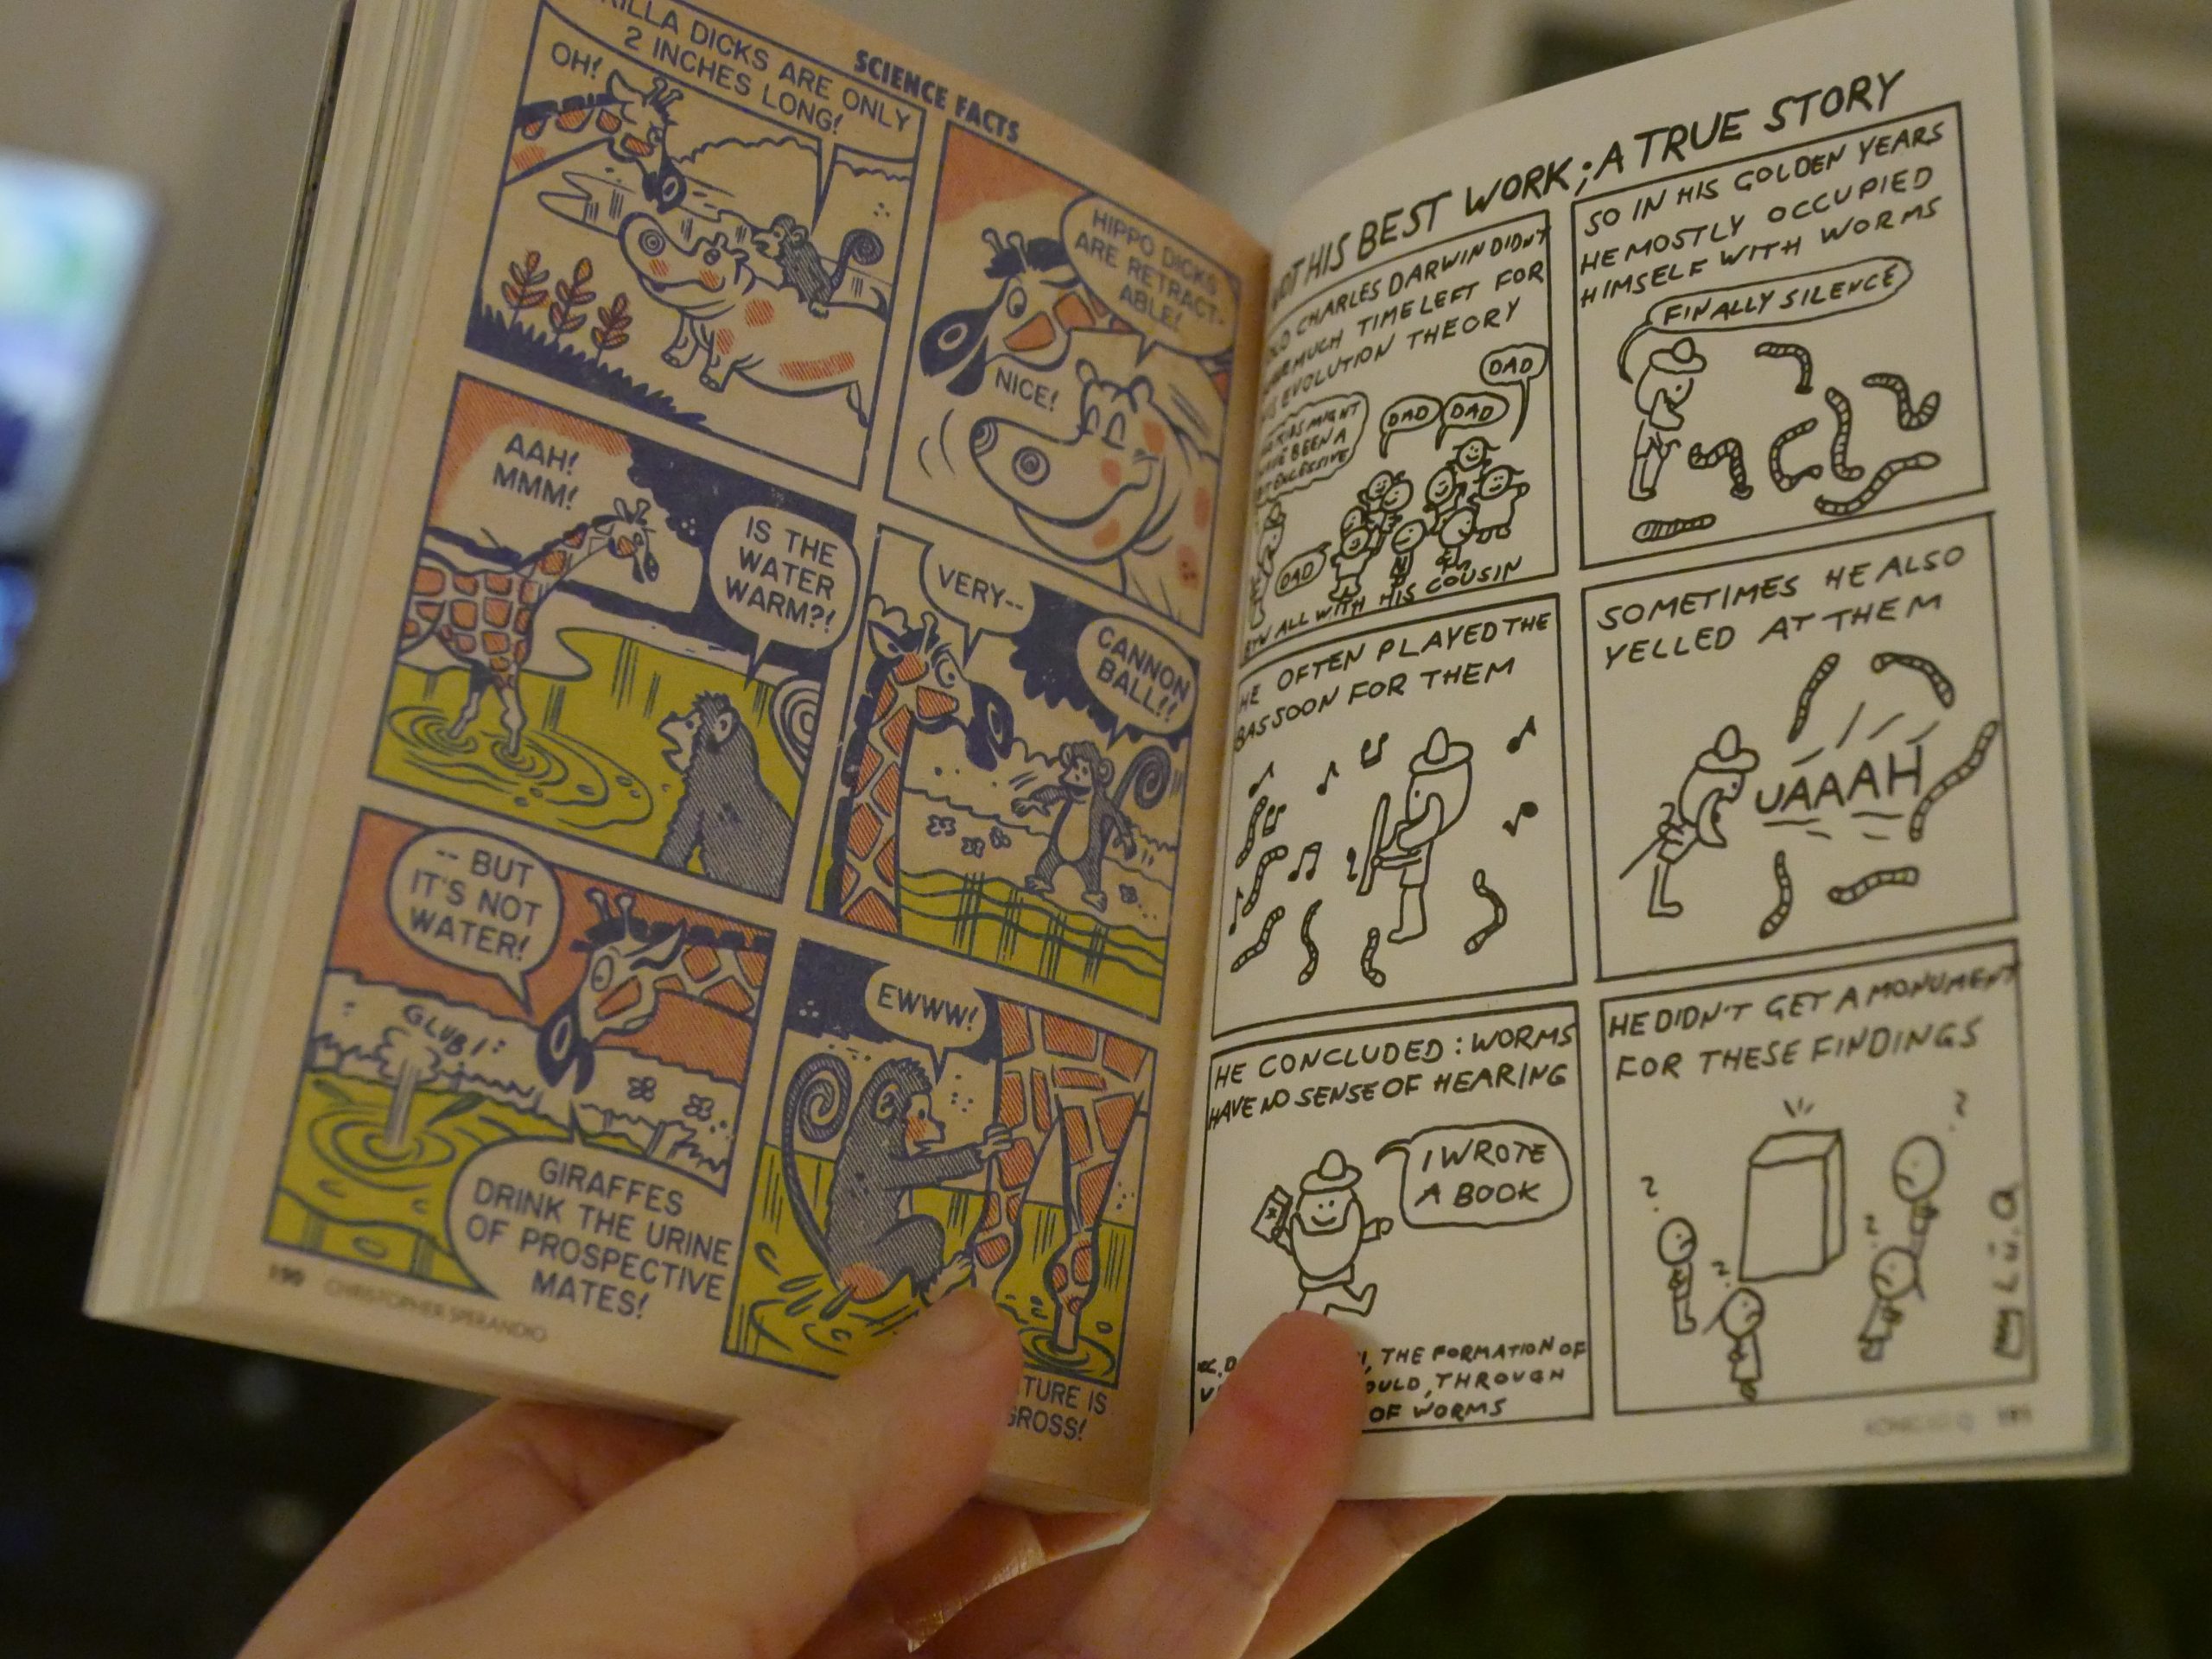 SCIENCE FACTS
DICKS ARE ONLY
2 INCHES LONG!
OH!
HIPPO DICKS
ARE RETRACT-
ABLE!
NICE!
AAH!
MMM!
IS THE
WATER
WARM?!
VERY--
CANNON
BALL!!
-- BUT
IT'S NOT
WATER!
GLUB!
GIRAFFES
DRINK THE URINE
OF PROSPECTIVE
MATES!
EWWW!
IS
GROSS!
190 CHRISTOPHER SPERANDIO
HIS BEST WORK; A TRUE STORY
CHARLES DARWIN DIDN'T
MUCH TIME LEFT FOR
EVOLUTION THEORY
KIDS MIGHT
BEEN A
EXCESSIVE
DAD
DAD
DAD
DAD
BTW ALL WITH HIS COUSIN
SO IN HIS GOLDEN YEARS
HE MOSTLY OCCUPIED
HIMSELF WITH WORMS
FINALLY SILENCE
HE OFTEN PLAYED THE
BASSOON FOR THEM
SOMETIMES HE ALSO
YELLED AT THEM
UAAAH
HE CONCLUDED: WORMS
HAVE NO SENSE OF HEARING
I WROTE
A BOOK
THE FORMATION OF
THROUGH
OF WORMS
HE DIDN'T GET A MONUMENT
FOR THESE FINDINGS
?
?
?
?
191